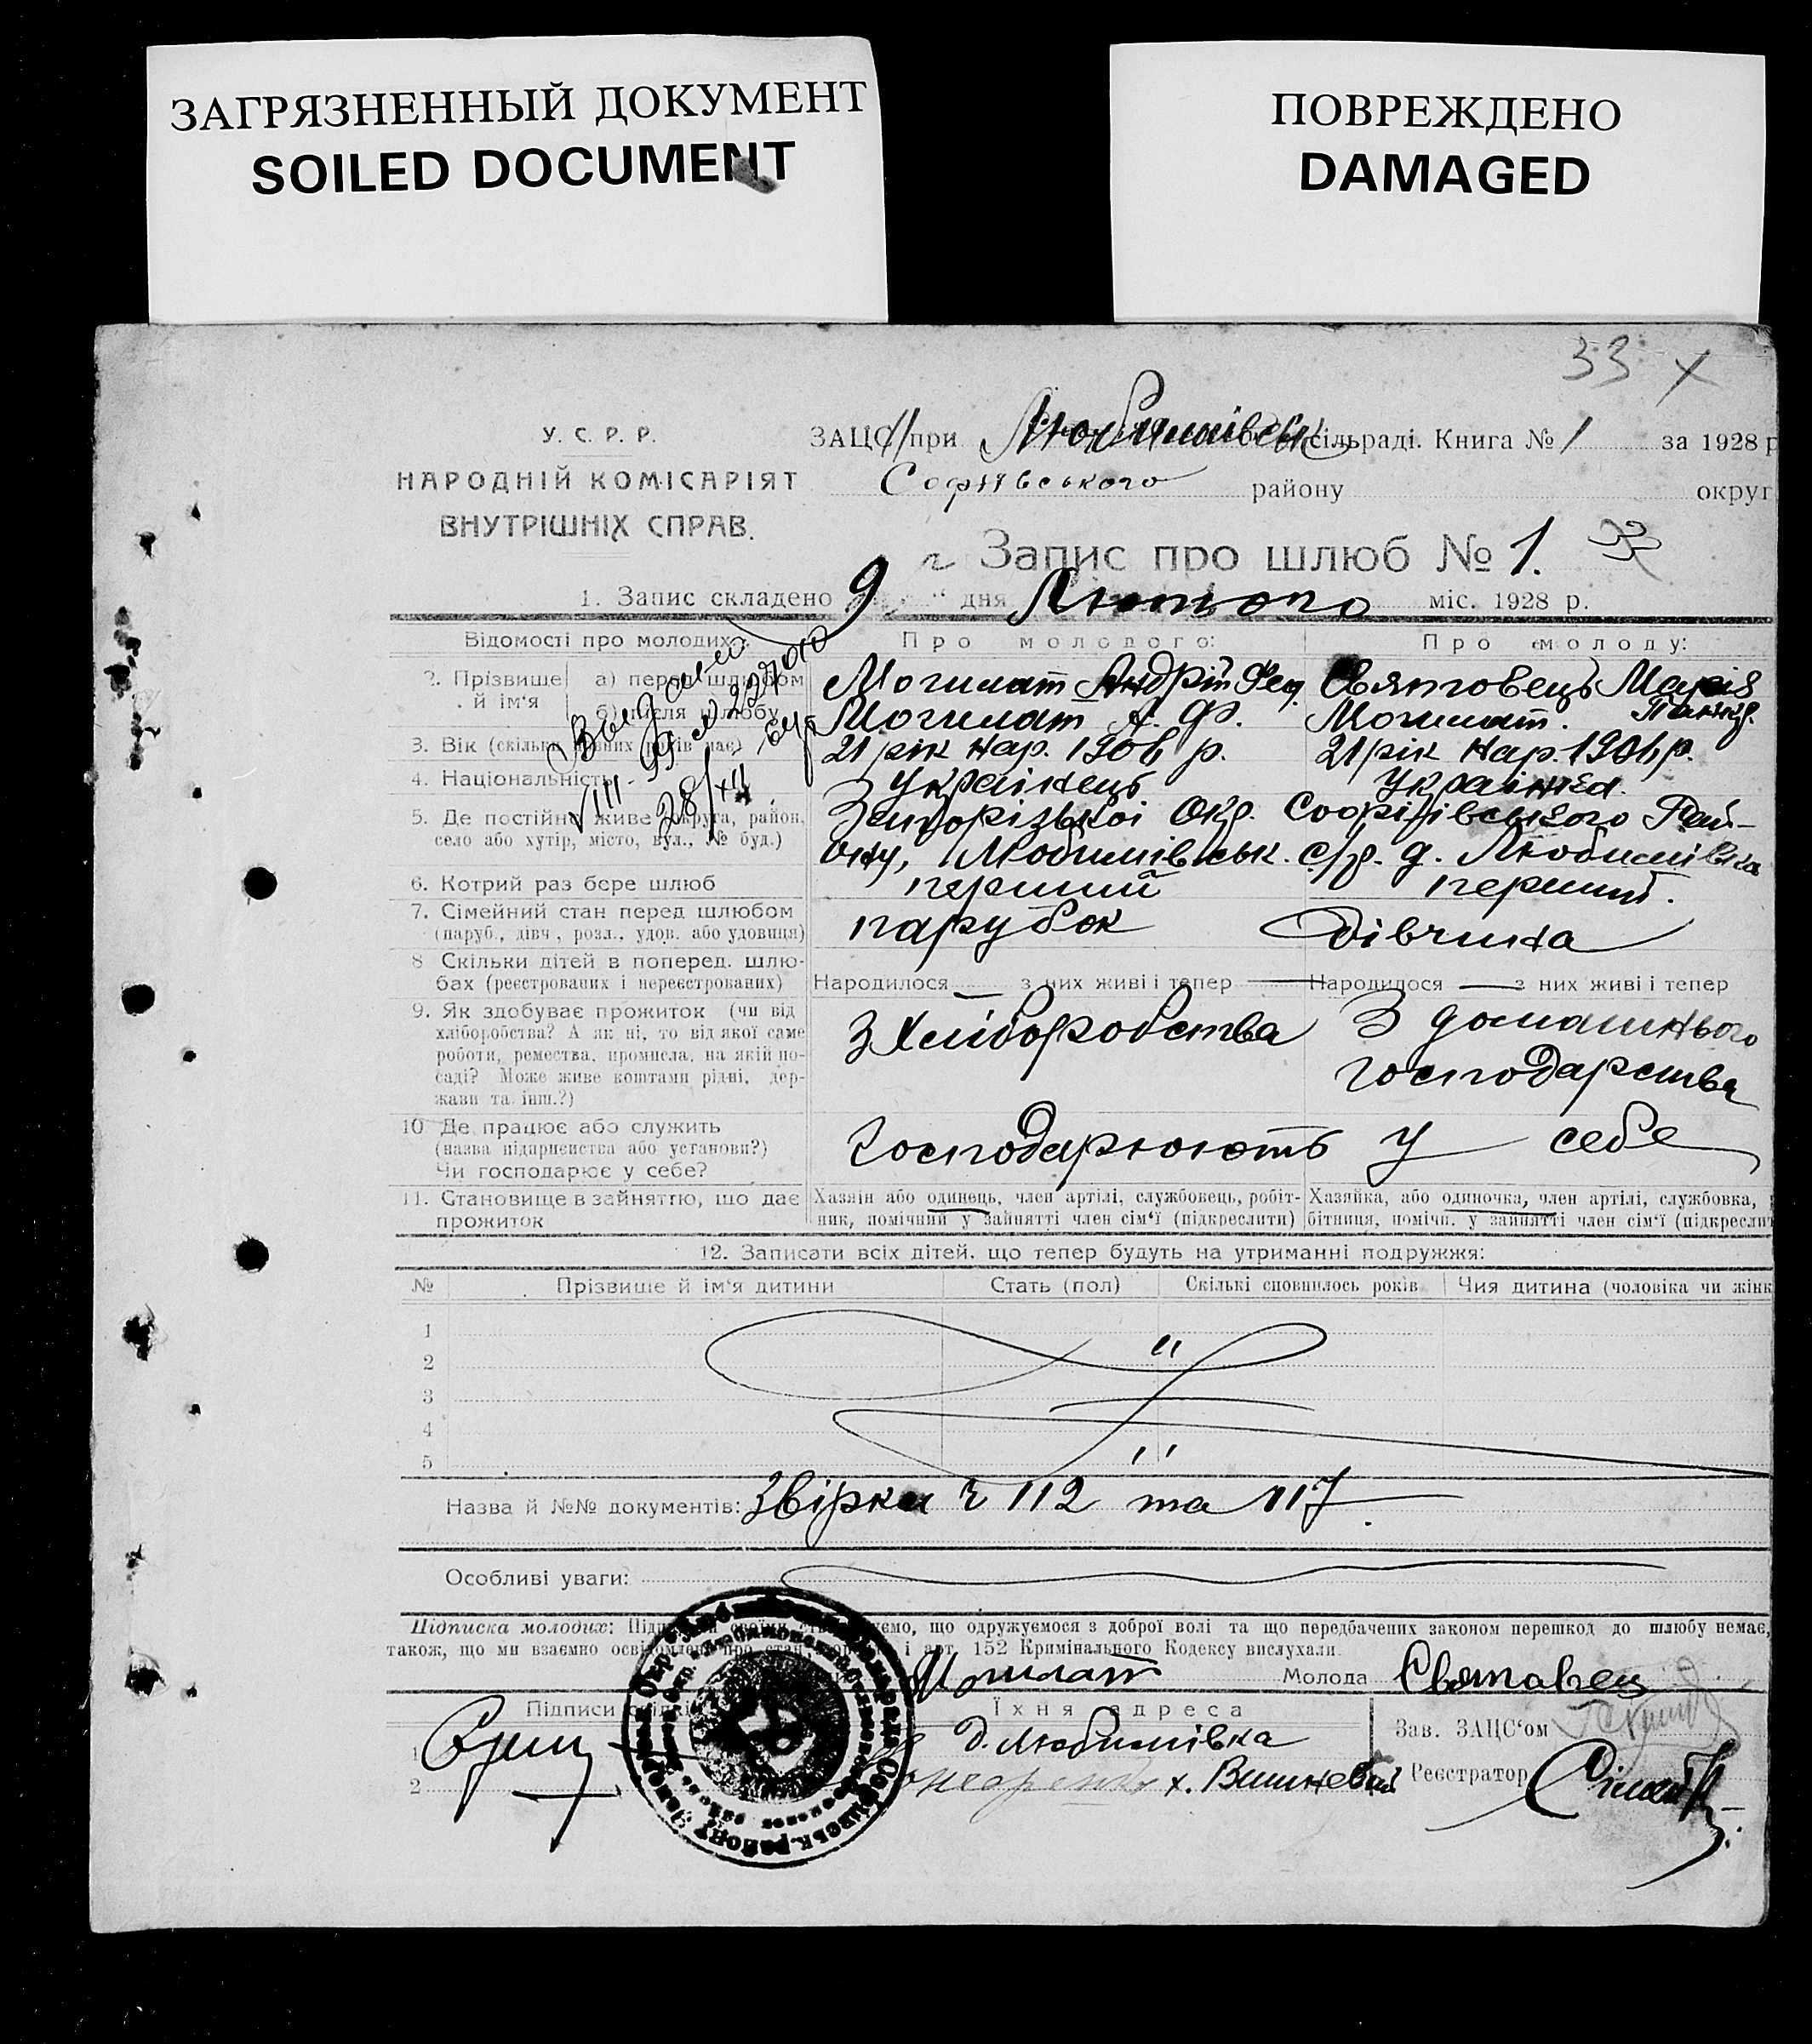 ЗАГРЯЗНЕННЫЙ ДОКУМЕНТ
SOILED DOCUMENT
ПОВРЕЖДЕНО
DAMAGED
33 х
У. С. Р. Р.
НАРОДНІЙ КОМІСАРІЯТ
ВНУТРІШНІХ СПРАВ.
ЗАЦС при Любимівськ сільраді. Книга № 1 за 1928 р
Софіївського району округ
Запис про шлюб № 1.
1. Запис складено 9 " дня Лютого міс. 1928 р.
Відомості про молодих: Про молодого: Про молоду:
2. Прізвище й ім'я а) перед шлюбом Могилат Андрій Фед. Святовець Марія
б) після шлюбу Могилат А. Ф. Могилат.
3. Вік (скільки має) 21 рік нар. 1906 р. 21 рік нар. 1906 р.
4. Національність Українець Українка
5. Де постійно живе округа, район, Запорізької Окр. Софіївського Рай-
село або хутір, місто, вул., № буд.) ону, Любимівськ. с/р. д. Любимівка
6. Котрий раз бере шлюб перший перший.
7. Сімейний стан перед шлюбом парубок Дівчина
(паруб., дівч., розл., удов. або удовиця)
8 Скільки дітей в поперед. шлю-
бах (реєстрованих і нереєстрованих) Народилося з них живі і тепер Народилося з них живі і тепер
9. Як здобуває прожиток (чи від
хліборобства? А як ні, то від якої саме З Хліборобства З домашнього
роботи, ремества, промисла, на якій по-
саді? Може живе коштами рідні, дер- господарства
жави та інш.?)
10 Де працює або служить
(назва підприємства або установи?) Господарюють у себе
Чи господарює у себе?
11. Становище в зайняттю, що дає Хазяїн або одинець, член артілі, службовець, робіт- Хазяйка, або одиночка, член артілі, службовка,
прожиток ник, помічний у зайнятті член сім'ї (підкреслити) бітниця, поміч. у зайнятті член сім'ї (підкреслит
12. Записати всіх дітей, що тепер будуть на утриманні подружжя:
№ Прізвище й ім'я дитини Стать (пол) Скількі сповнилось років Чия дитина (чоловіка чи жінк
1
2
3
4
5
Назва й №№ документів: Звірка ч 112 та 117
Особливі уваги:
Підписка молодих: що одружуємося з доброї волі та що передбачених законом перешкод до шлюбу немає,
також, що ми взаємно і арт. 152 Кримінального Кодексу вислухали.
Могилат Молода Святовец
Підписи Їхня адреса Зав. ЗАЦС'ом
1 д. Любимівка
2 х. Вишневий Реєстратор